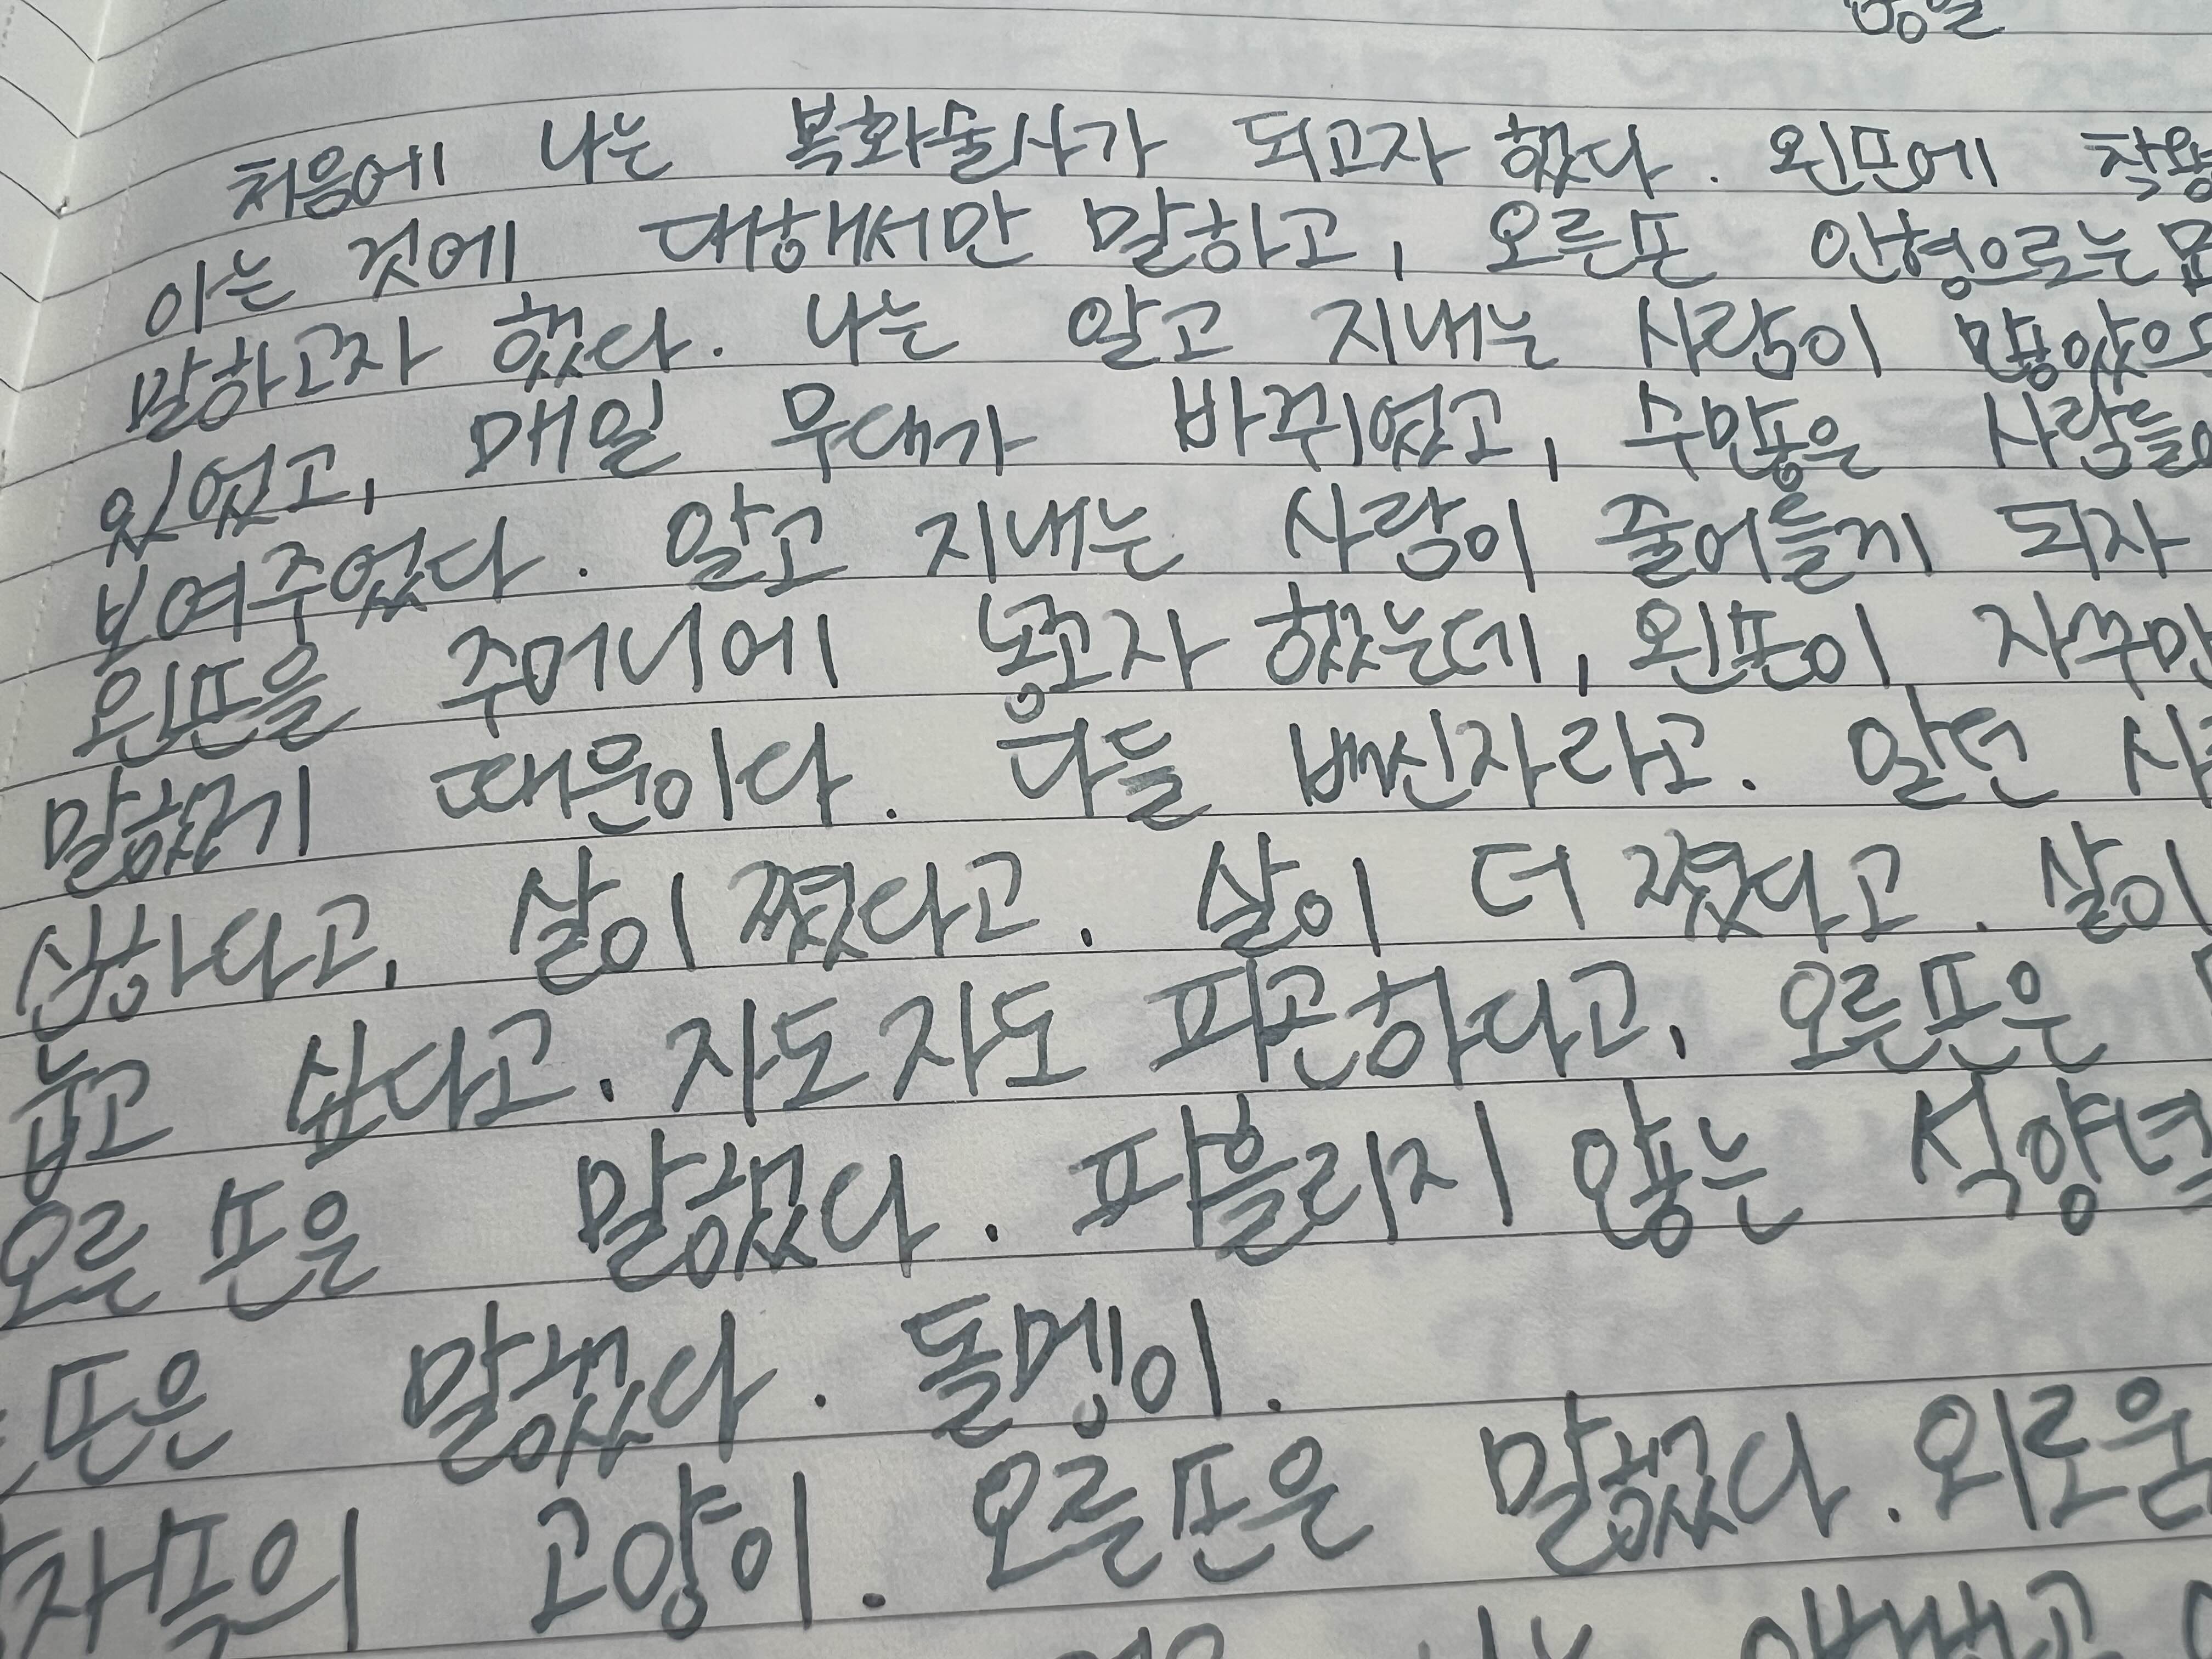 처음에 나는 복화술사가 되고자 했다. 왼손에
아는 것에 대해서만 말하고, 오른손 인형으로는
말하고자 했다. 나는 알고 지내는 사람이
있었고, 매일 무대가 바뀌었고, 수많은
보여주었다. 알고 지내는 사람이 줄어들게 되자
왼손을 주머니에 넣고자 했는데, 왼손이 자꾸만
말했기 때문이다. 다들 배신자라고. 알던
심하다고, 살이 쪘다고. 살이 더 쪘다고. 살이
눕고 싶다고. 자도 자도 피곤하다고, 오른손은
오른손은 말했다. 피 흘리지 않는
손은 말했다. 돌멩이.
고양이. 오른손은 말했다. 외로움